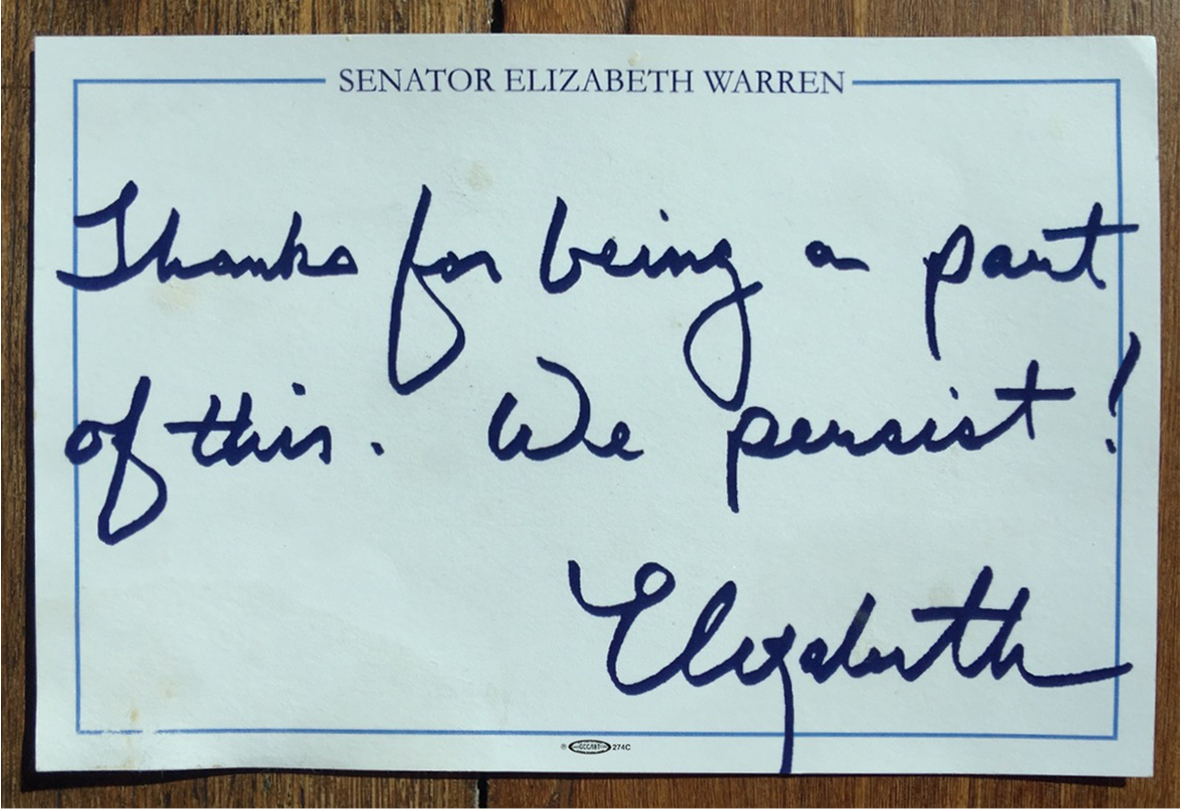 SENATOR ELIZABETH WARREN
Thanks for being a part
of this. We persist!
Elizabeth
274C